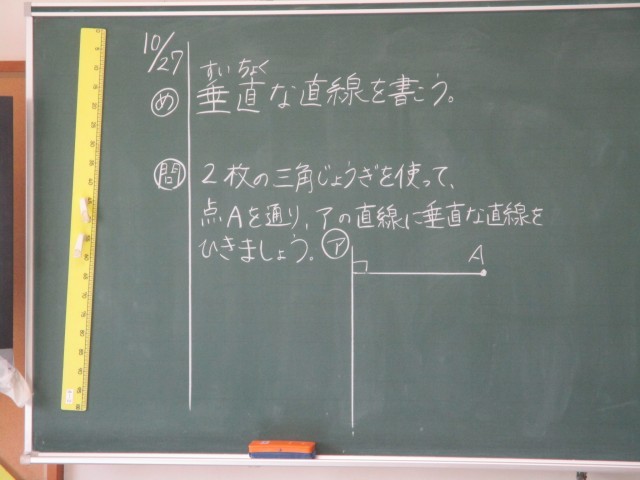 10/27
すいちょく
め 垂直な直線を書こう。
問 2枚の三角じょうぎを使って、
点Aを通り、アの直線に垂直な直線を
ひきましょう。
ア
A